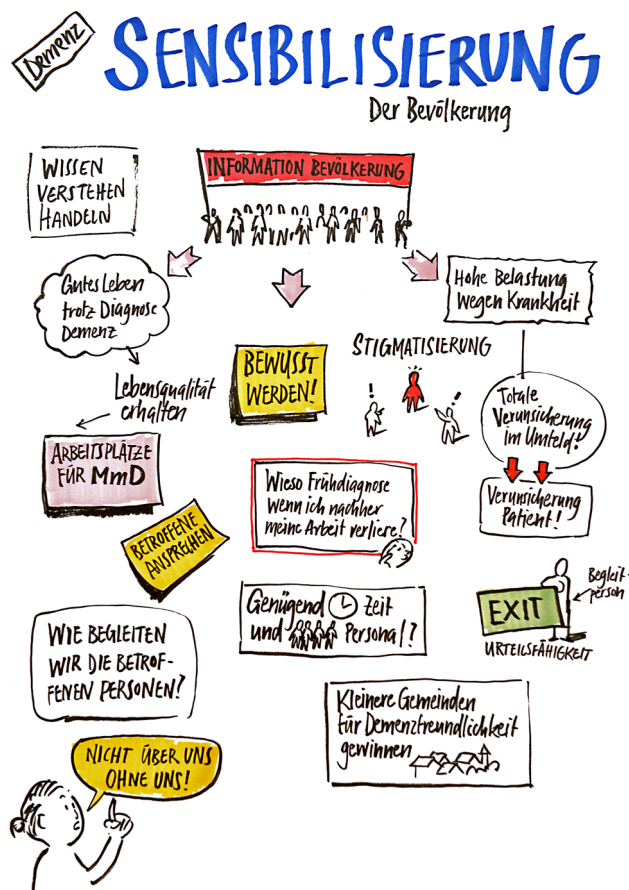 Demenz
SENSIBILISIERUNG
Der Bevölkerung
WISSEN
VERSTEHEN
HANDELN
INFORMATION BEVÖLKERUNG
Gutes Leben
trotz Diagnose
Demenz
Hohe Belastung
wegen Krankheit
BEWUSST
WERDEN!
STIGMATISIERUNG
! !
Lebensqualität
erhalten
Totale
Verunsicherung
im Umfeld!
ARBEITSPLÄTZE
FÜR MmD
Wieso Frühdiagnose
wenn ich nachher
meine Arbeit verliere?
Verunsicherung
Patient!
BETROFFENE
ANSPRECHEN
Genügend Zeit
und Personal?
Begleit-
person
EXIT
URTEILSFÄHIGKEIT
WIE BEGLEITEN
WIR DIE BETROF-
FENEN PERSONEN?
Kleinere Gemeinden
für Demenzfreundlichkeit
gewinnen
NICHT ÜBER UNS
OHNE UNS!